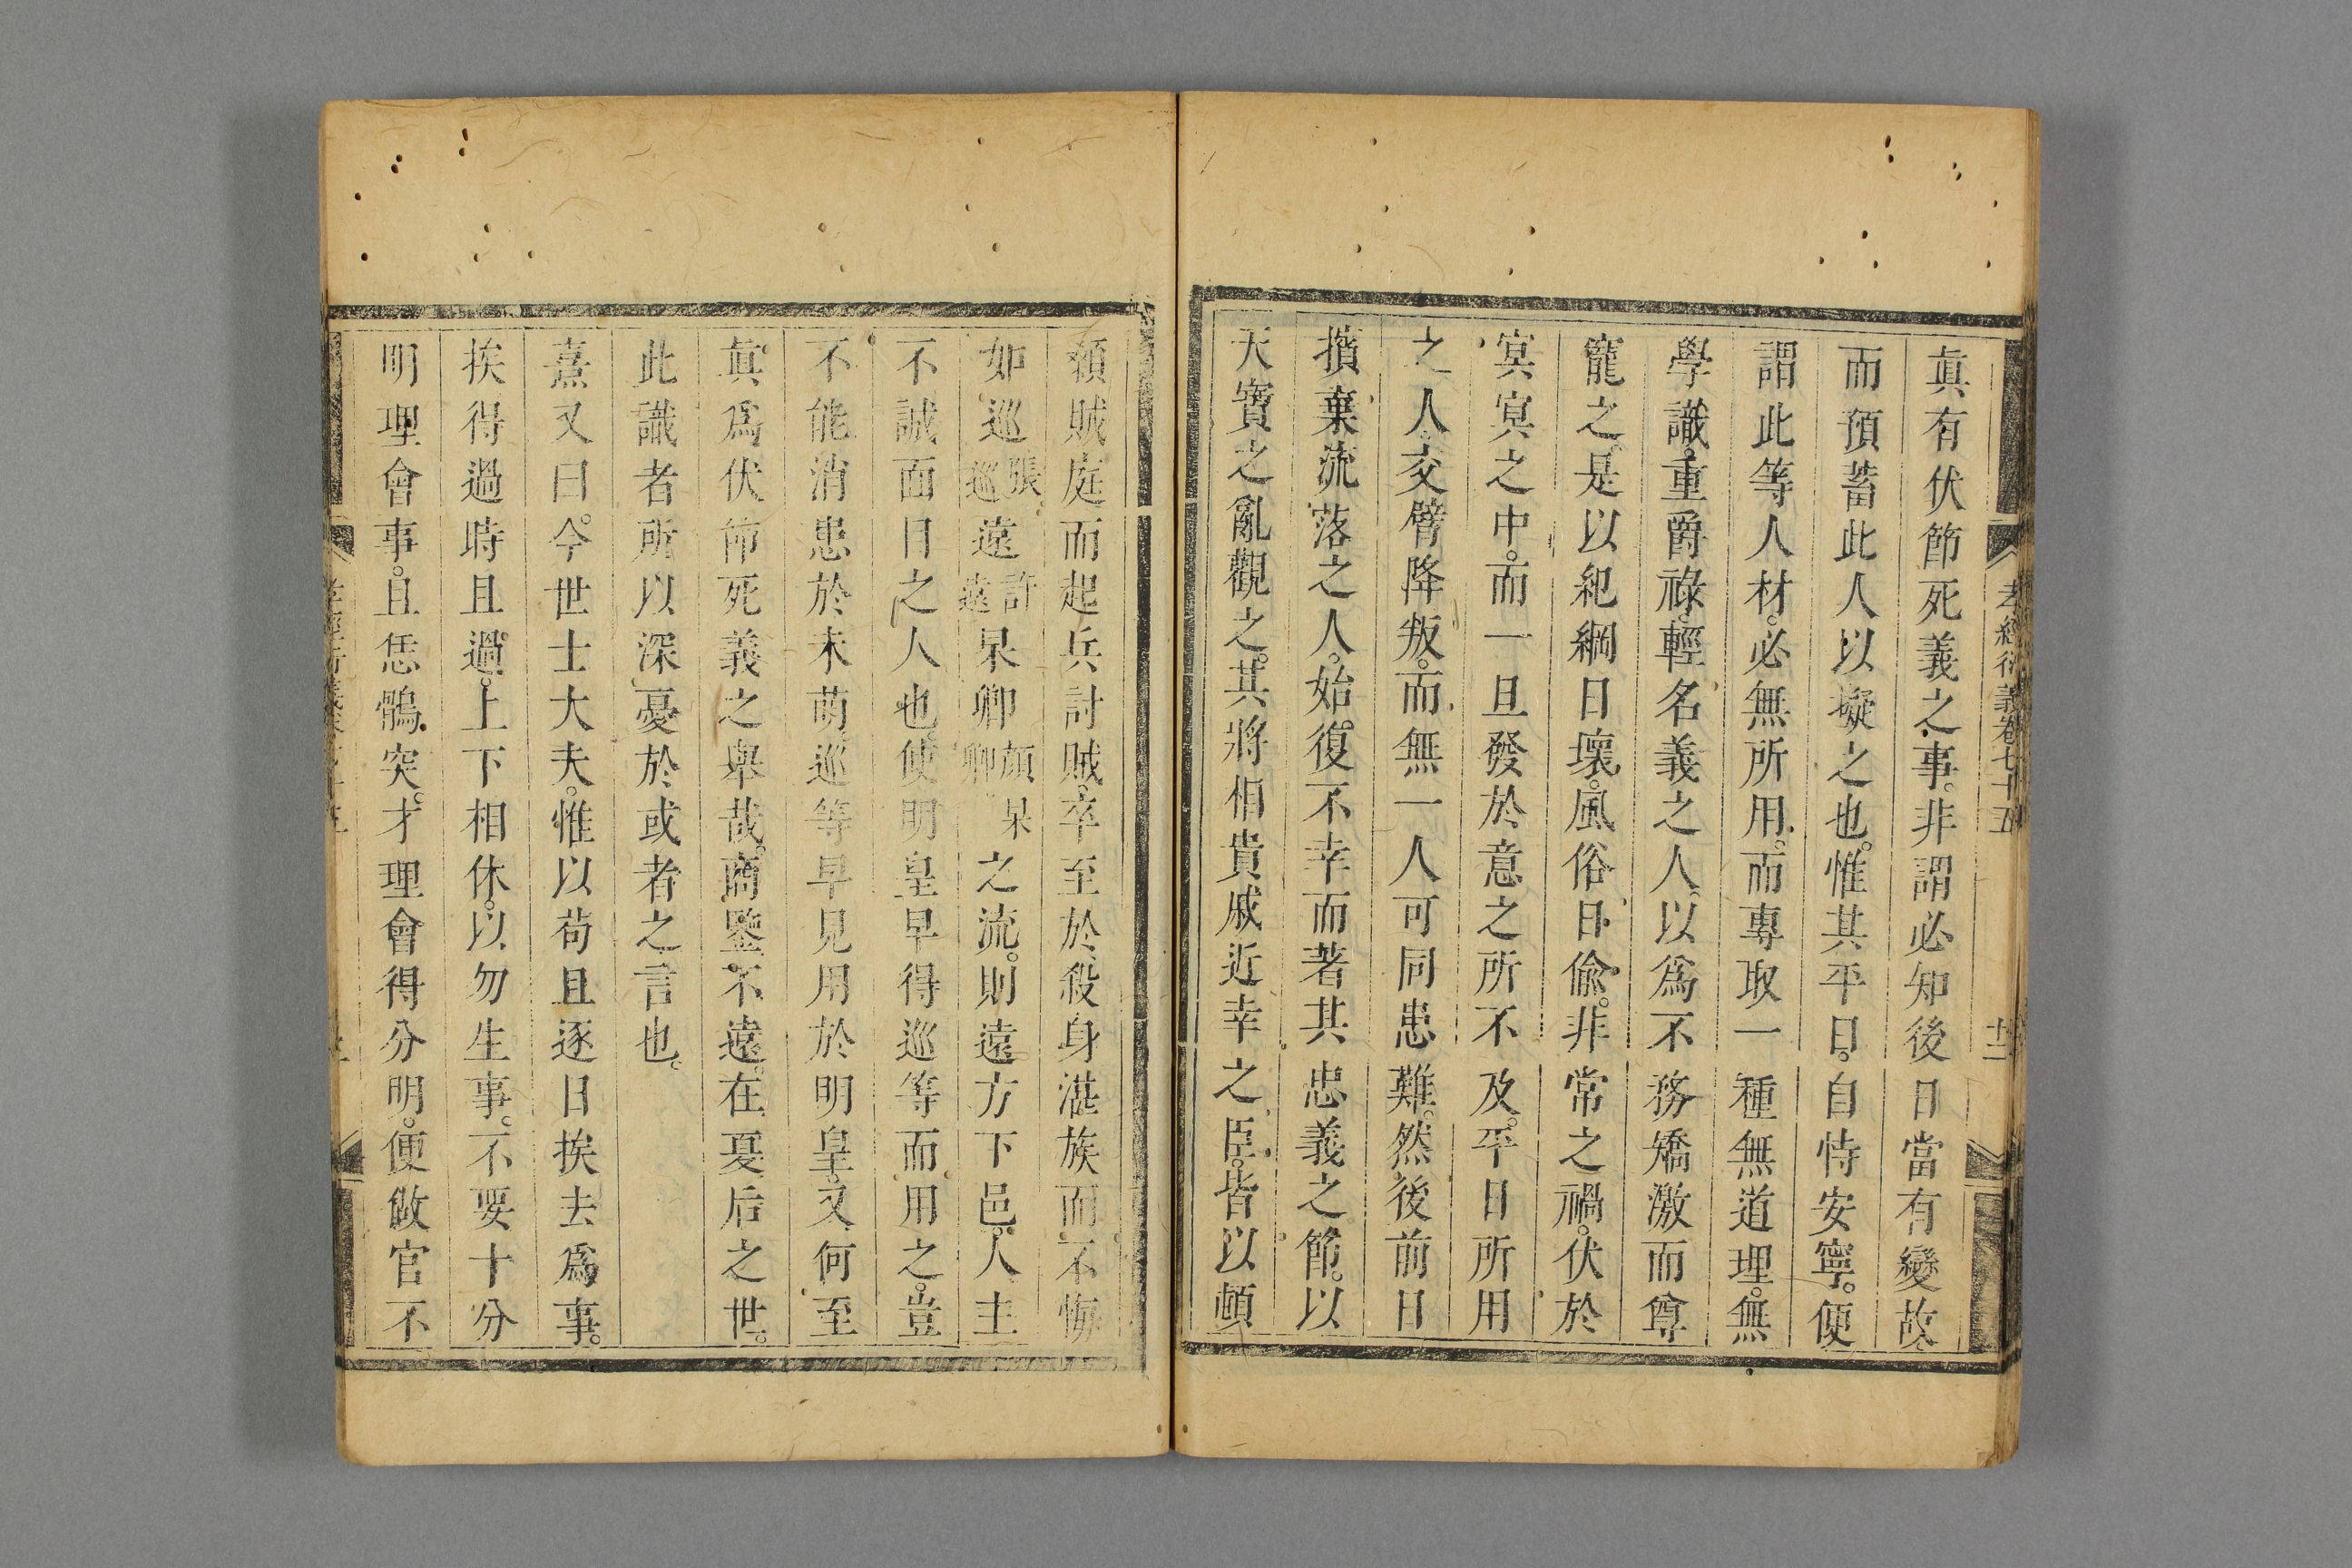 孝經衍義卷七十五
真有伏節死義之事。非謂必知後日當有變故。
而預蓄此人以擬之也。惟其平日。自恃安寧。便
謂此等人材。必無所用。而專取一種無道理。無
學識。重爵祿。輕名義之人。以爲不務矯激而尊
寵之。是以紀綱日壞。風俗日偷。非常之禍。伏於
冥冥之中。而一旦發於意之所不及。平日所用
之人。交臂降叛。而無一人可同患難。然後前日
擯棄流落之人。始復不幸而著其忠義之節。以
天寶之亂觀之。其將相貴戚近幸之臣。皆以頓
顙賊庭而起兵討賊。卒至於殺身湛族而不悔
如巡張巡遠許遠杲卿顏杲卿之流。則遠方下邑。人主
不誠面目之人也。使明皇早得巡等而用之。豈
不能消患於未萌。巡等早見用於明皇。又何至
真爲伏節死義之舉哉。商鑒不遠。在夏后之世。
此識者所以深憂於或者之言也。
熹又曰。今世士大夫。惟以苟且逐日挨去爲事。
挨得過時且過。上下相休。以勿生事。不要十分
明理會事。且恁鶻突。才理會得分明。便做官不